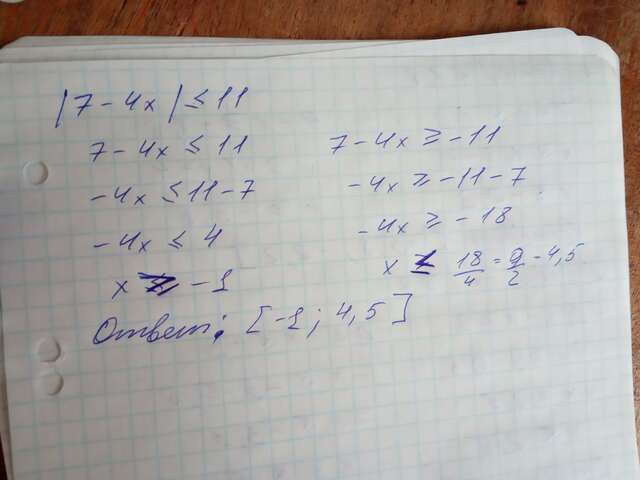 |7 - 4x| ≤ 11
7 - 4x ≤ 11
-4x ≤ 11 - 7
-4x ≤ 4
x ≥ -1
7 - 4x ≥ -11
-4x ≥ -11 - 7
-4x ≥ -18
x ≤ 18/4 = 9/2 - 4,5
Ответ: [-1; 4,5]